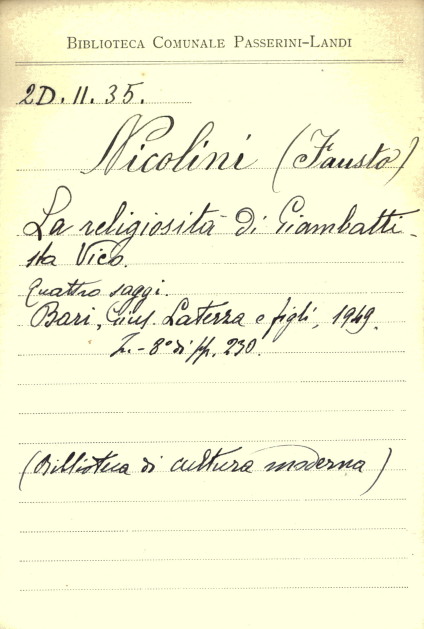 BIBLIOTECA COMUNALE PASSERINI-LANDI
2D. II. 35.
Nicolini (Fausto)
La religiosità di Giambatti-
sta Vico.
Quattro saggi.
Bari, Gius. Laterza e figli, 1949.
- 8° di pp. 230.
(Biblioteca di cultura moderna)